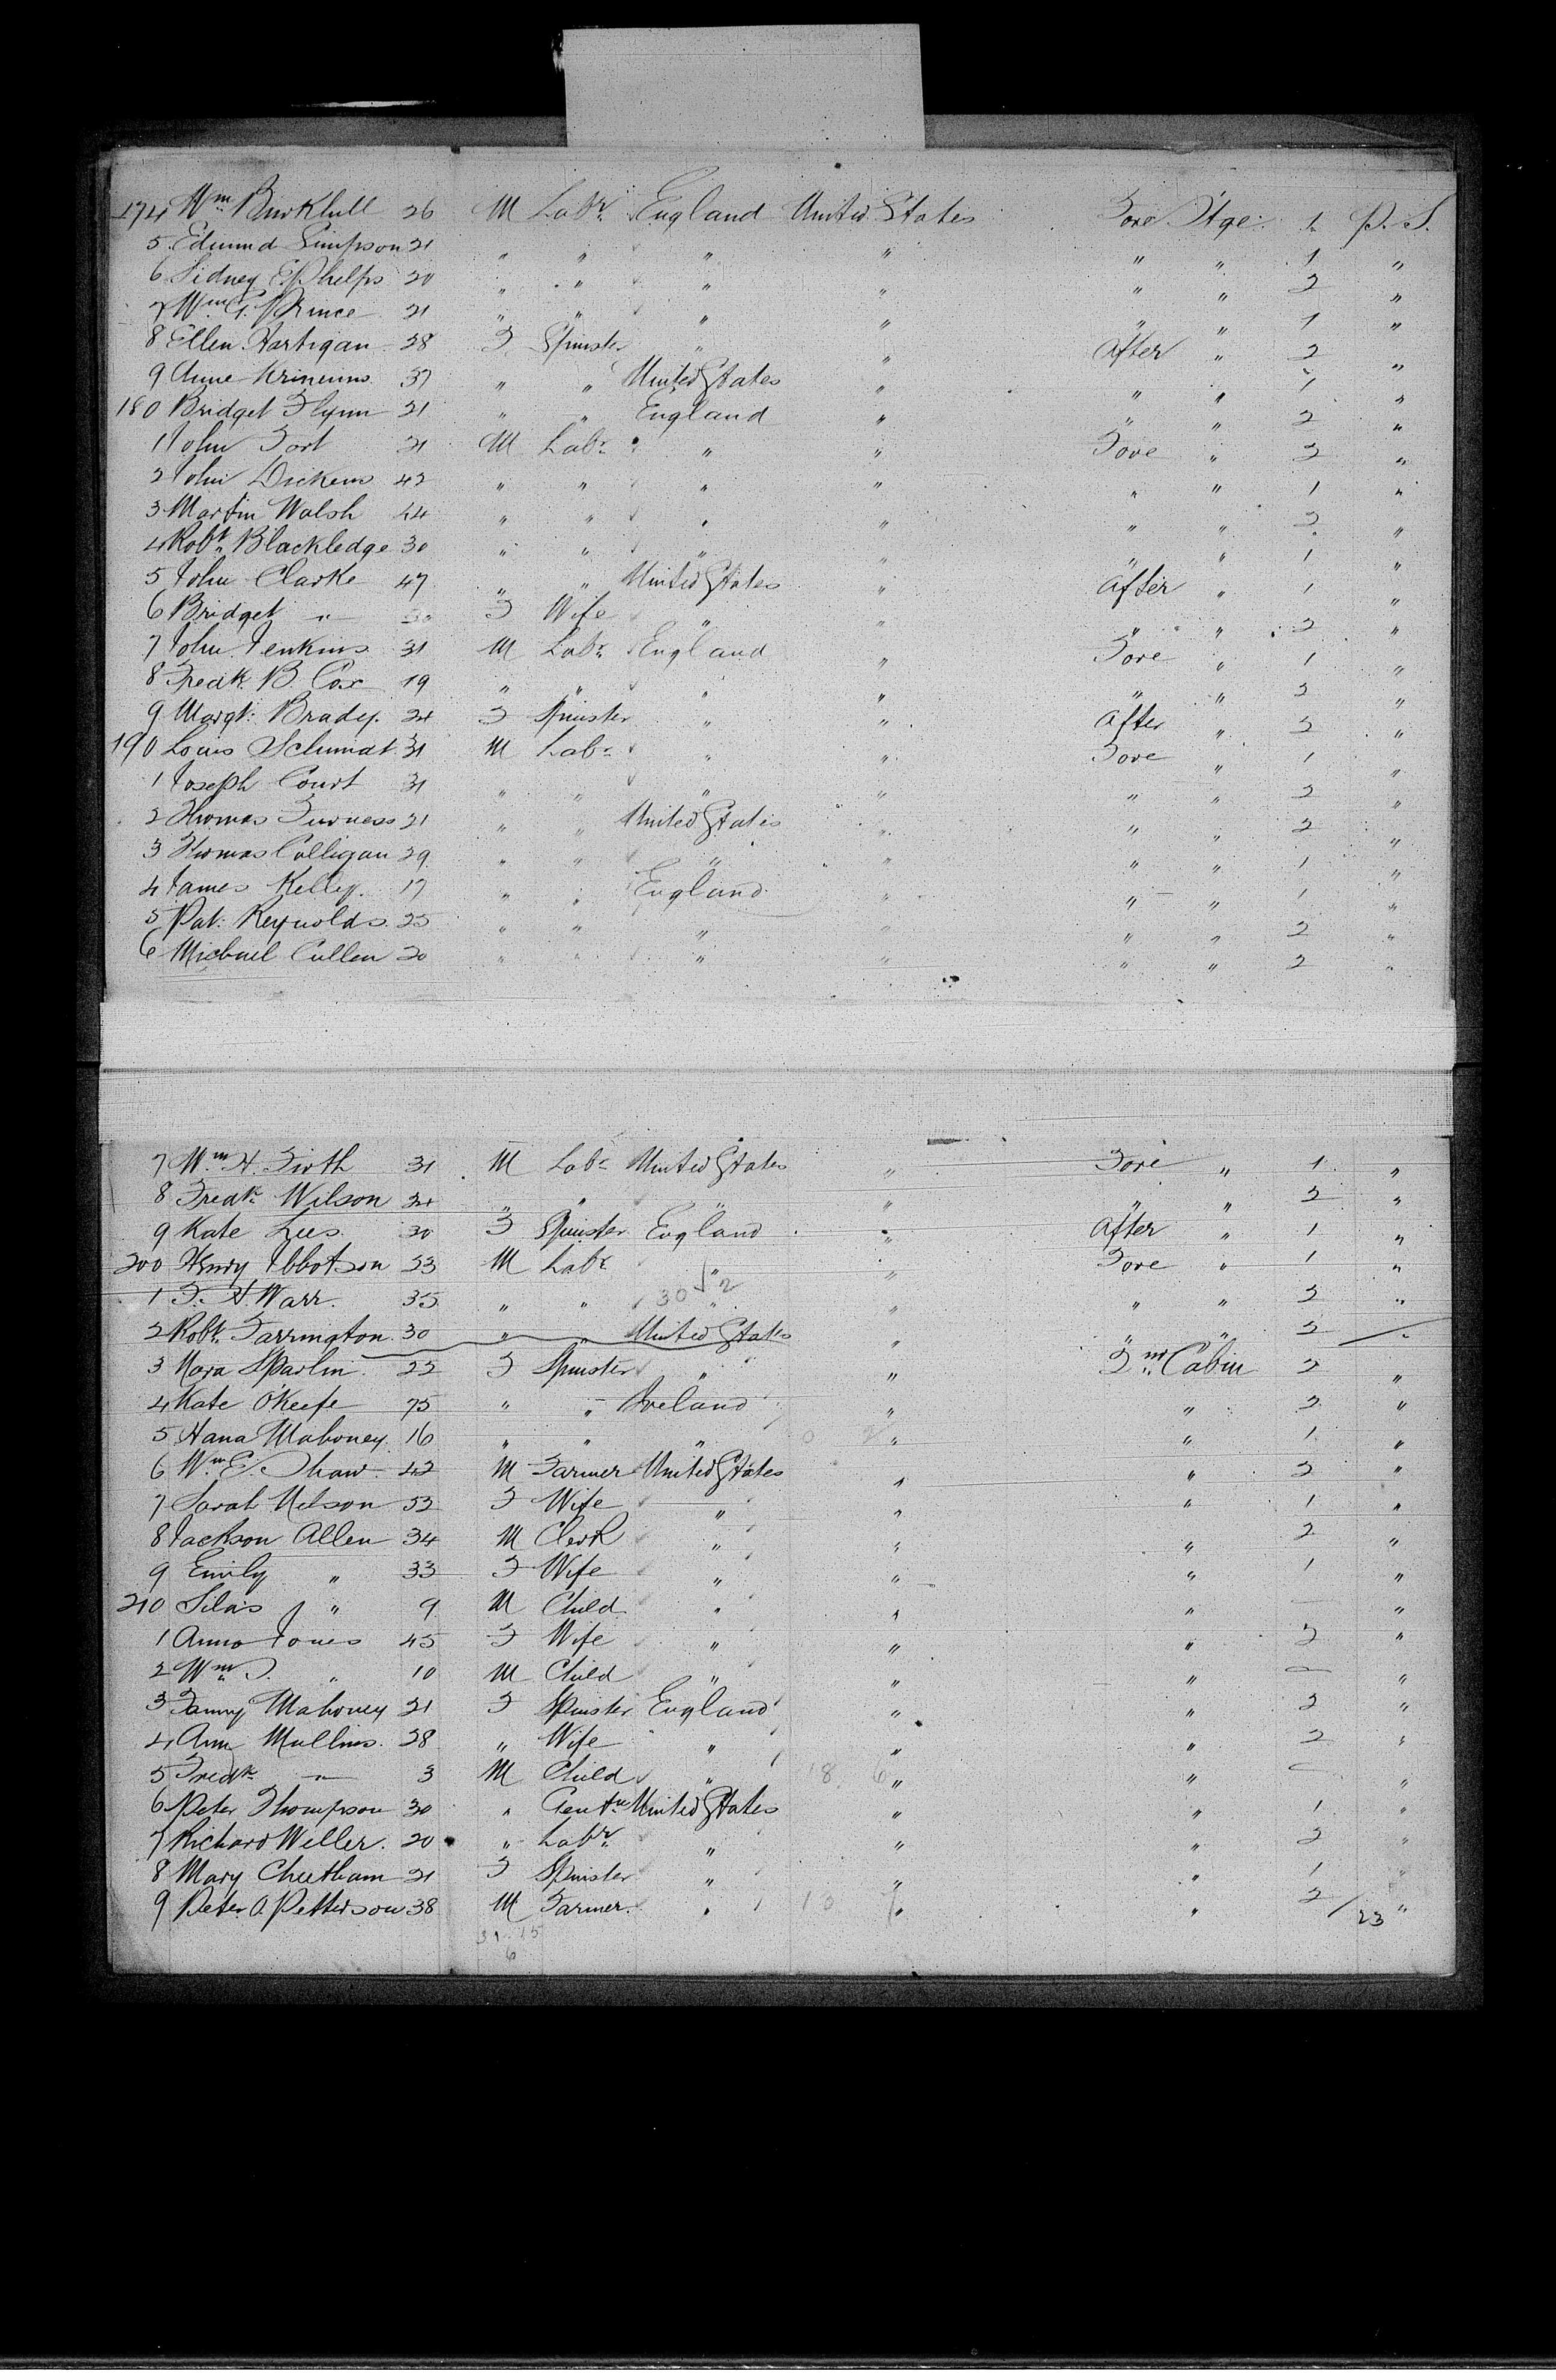 174 Wm Burkhill 26 M Labr England United States Fore Stge 1 P.S.
5 Edmund Simpson 21 " " " " " " 1 "
6 Sidney E. Phelps 20 " " " " " " 2 "
7 Wm G. Prince 21 " " " " " " 1 "
8 Ellen Hartigan 28 F Spinster " " After " 2 "
9 Anne 37 " " United States " " " 1 "
180 Bridget Flynn 21 " " England " " " 2 "
1 John Fort 21 M Labr " " Fore " 2 "
2 John Dickens 42 " " " " " " 1 "
3 Martin Walsh 44 " " " " " " 2 "
4 Robt Blackledge 30 " " " " " " 1 "
5 John Clarke 47 " " United States " After " 1 "
6 Bridget " F Wife " " " " 2 "
7 John Jenkins 31 M Labr England " Fore " 1 "
8 Fredk B. Cox 19 " " " " " " 2 "
9 Margt Brady 24 F Spinster " " After " 2 "
190 Louis Schmidt 31 M Labr " " Fore " 1 "
1 Joseph Court 31 " " " " " " 2 "
2 Thomas Furness 21 " " United States " " " 2 "
3 Thomas Colligan 29 " " " " " " 1 "
4 James Kelly 17 " " England " " " 1 "
5 Pat. Reynolds 25 " " " " " " 2 "
6 Michael Cullen 20 " " " " " " 2 "
7 Wm H. Firth 31 M Labr United States " Fore " 1 "
8 Fredk Wilson 24 " " " " " " 2 "
9 Kate Lees 30 F Spinster England " After " 1 "
200 Henry Ibbotson 23 M Labr " " Fore " 1 "
1 F. H. Warr 35 " " " " " " 2 "
2 Robt Farrington 30 " " United States " " " 2 "
3 Nora Sparlin 22 F Spinster " " 2nd Cabin 2 "
4 Kate O'Keefe 75 " " Ireland " " 2 "
5 Hana Mahoney 16 " " " " " 1 "
6 Wm E. Shaw 42 M Farmer United States " " 2 "
7 Sarah Nelson 52 F Wife " " " 1 "
8 Jackson Allen 34 M Clerk " " " 2 "
9 Emily " 33 F Wife " " " 1 "
210 Silas J " 9 M Child " " " — "
1 Anna Jones 45 F Wife " " " 2 "
2 Wm J. " 10 M Child " " " — "
3 Fanny Mahoney 21 F Spinster England " " 2 "
4 Ann Mullins 28 " Wife " " " 2 "
5 Fredk " 3 M Child " " " — "
6 Peter Thompson 30 " Gentn United States " " 1 "
7 Richard Weller 20 " Labr " " " 2 "
8 Mary Cheetham 21 F Spinster " " " 1 "
9 Peter O. Petterson 38 M Farmer " " " 2 / 23 "
31 15
6